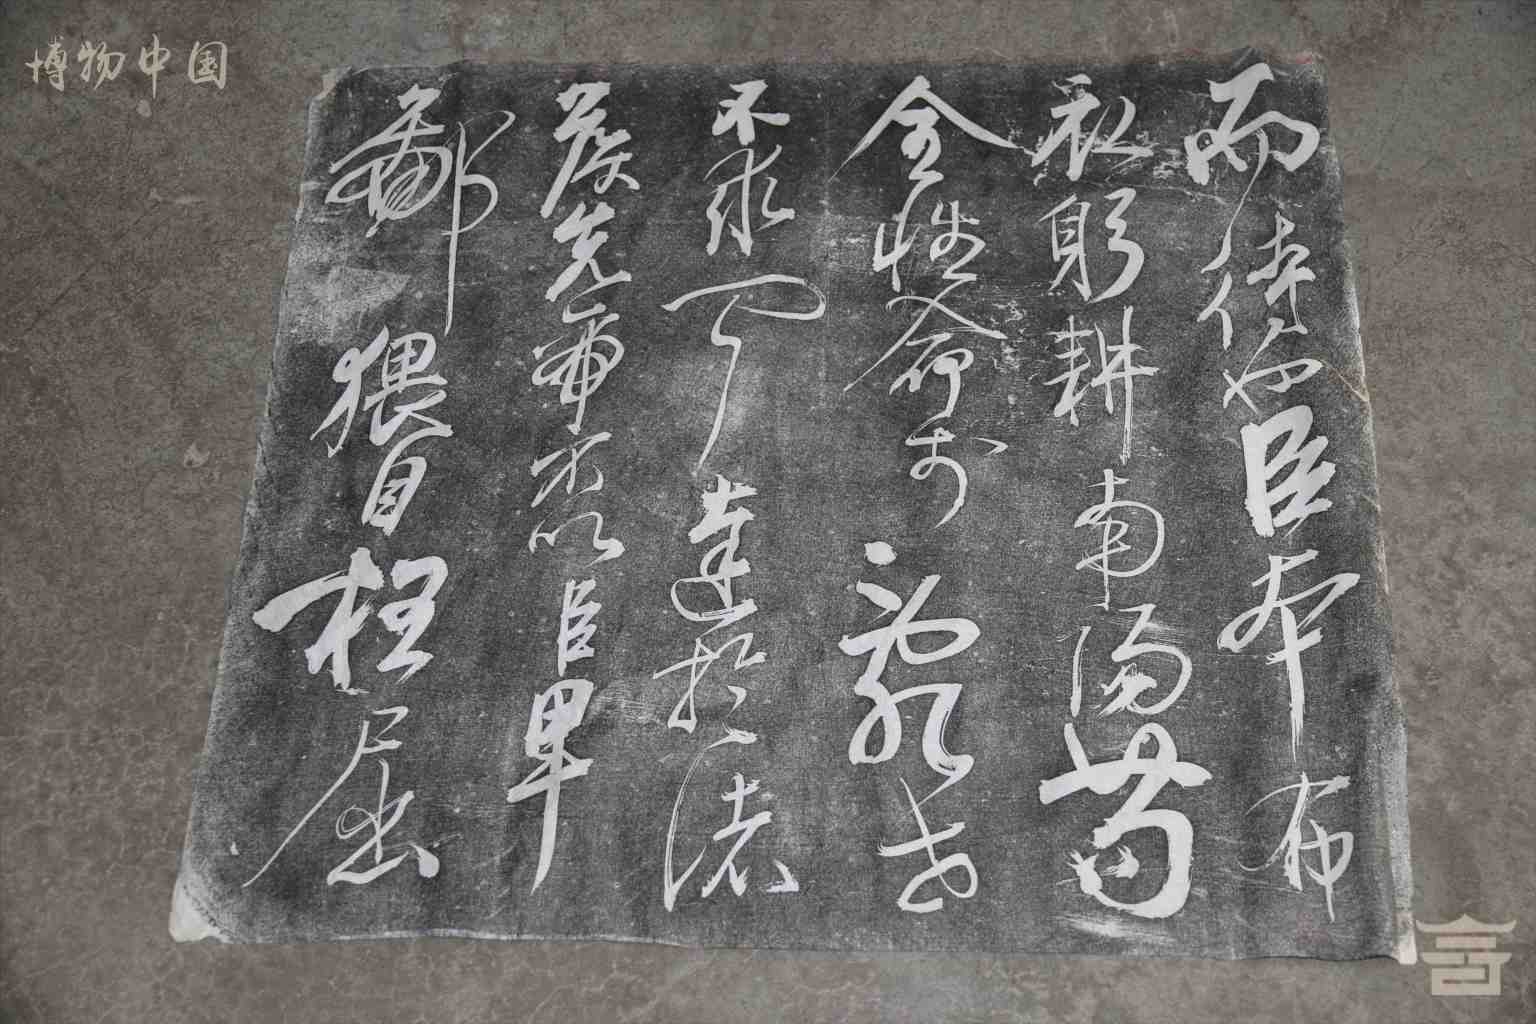 博物中国
而待也臣本布
衣躬耕南陽苟
全性命於亂世
不求聞達於諸
侯先帝不以臣卑
鄙猥自枉屈